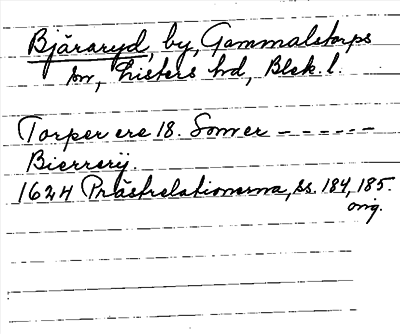 Bjäraryd, by, Gammalstorps
sn, Listers hd, Blek. l.
Torper ere 18. Somer ------
Bierrerÿ.
1624 Prästrelationerna, ss. 184, 185.
orig.